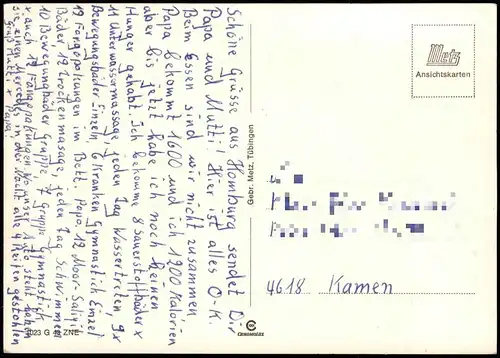 Schöne Grüsse aus Homburg sendet Dir
Papa und Mutti! Hier ist alles O.K.
Beim Essen sind wir nicht zusammen
Papa bekommt 1600 und ich 1200 Kalorien
aber bis jetzt habe ich noch keinen
Hunger gehabt. Ich bekomme 8 Sauerstoffbäder x
11 Unterwassermassage, jeden Tag Wassertreten, 9x
Bewegungsbäder Einzeln, 6 Kranken Gymnastick Einzel
12 Fangopakungen im Bett. Papa. 12 Moor-
Bäder 12 Trockenmasage, jeden Tag Schwimmen
10 Bewegungbäder Gruppe, 7 Gruppe Gymnastick
x auch 12 Fangopackungen Wo unser Auto steht haben
sie einen Mercedes in der Nacht alle 4 Reifen gestohlen
Gruß Mutti x Papa!
Metz
Ansichtskarten
Gebr. Metz, Tübingen
4618 Kamen
ZNE